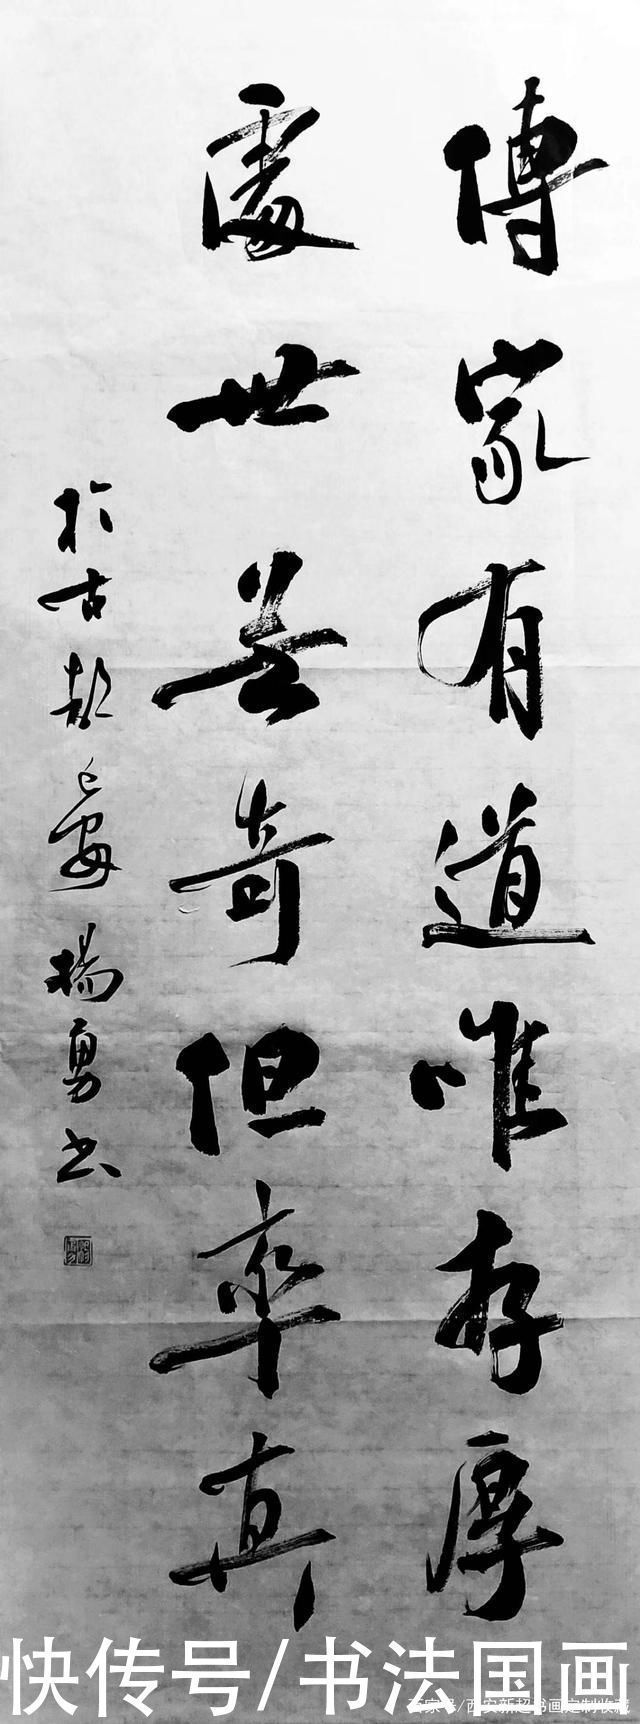 傳家有道唯存厚
處世無奇但率真
於古都長安楊勇书
快传号/书法国画
百家号/西安新超书画定制收藏